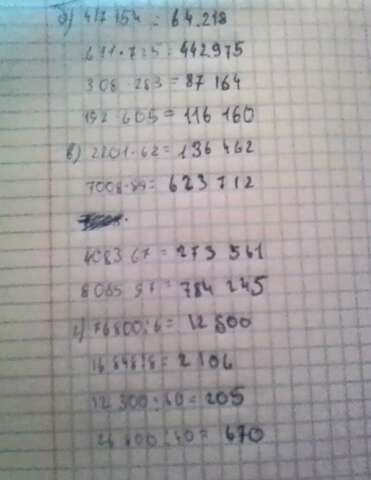 б) 417·154 = 64.218
611·725 = 442975
308·283 = 87 164
192·605 = 116 160
в) 2201·62 = 136 462
7008·89 = 623 712
4083 67 = 273 561
8085 97 = 784 245
г) 76800:6 = 12 800
16848:8 = 2106
12 300:60 = 205
26 800:40 = 670